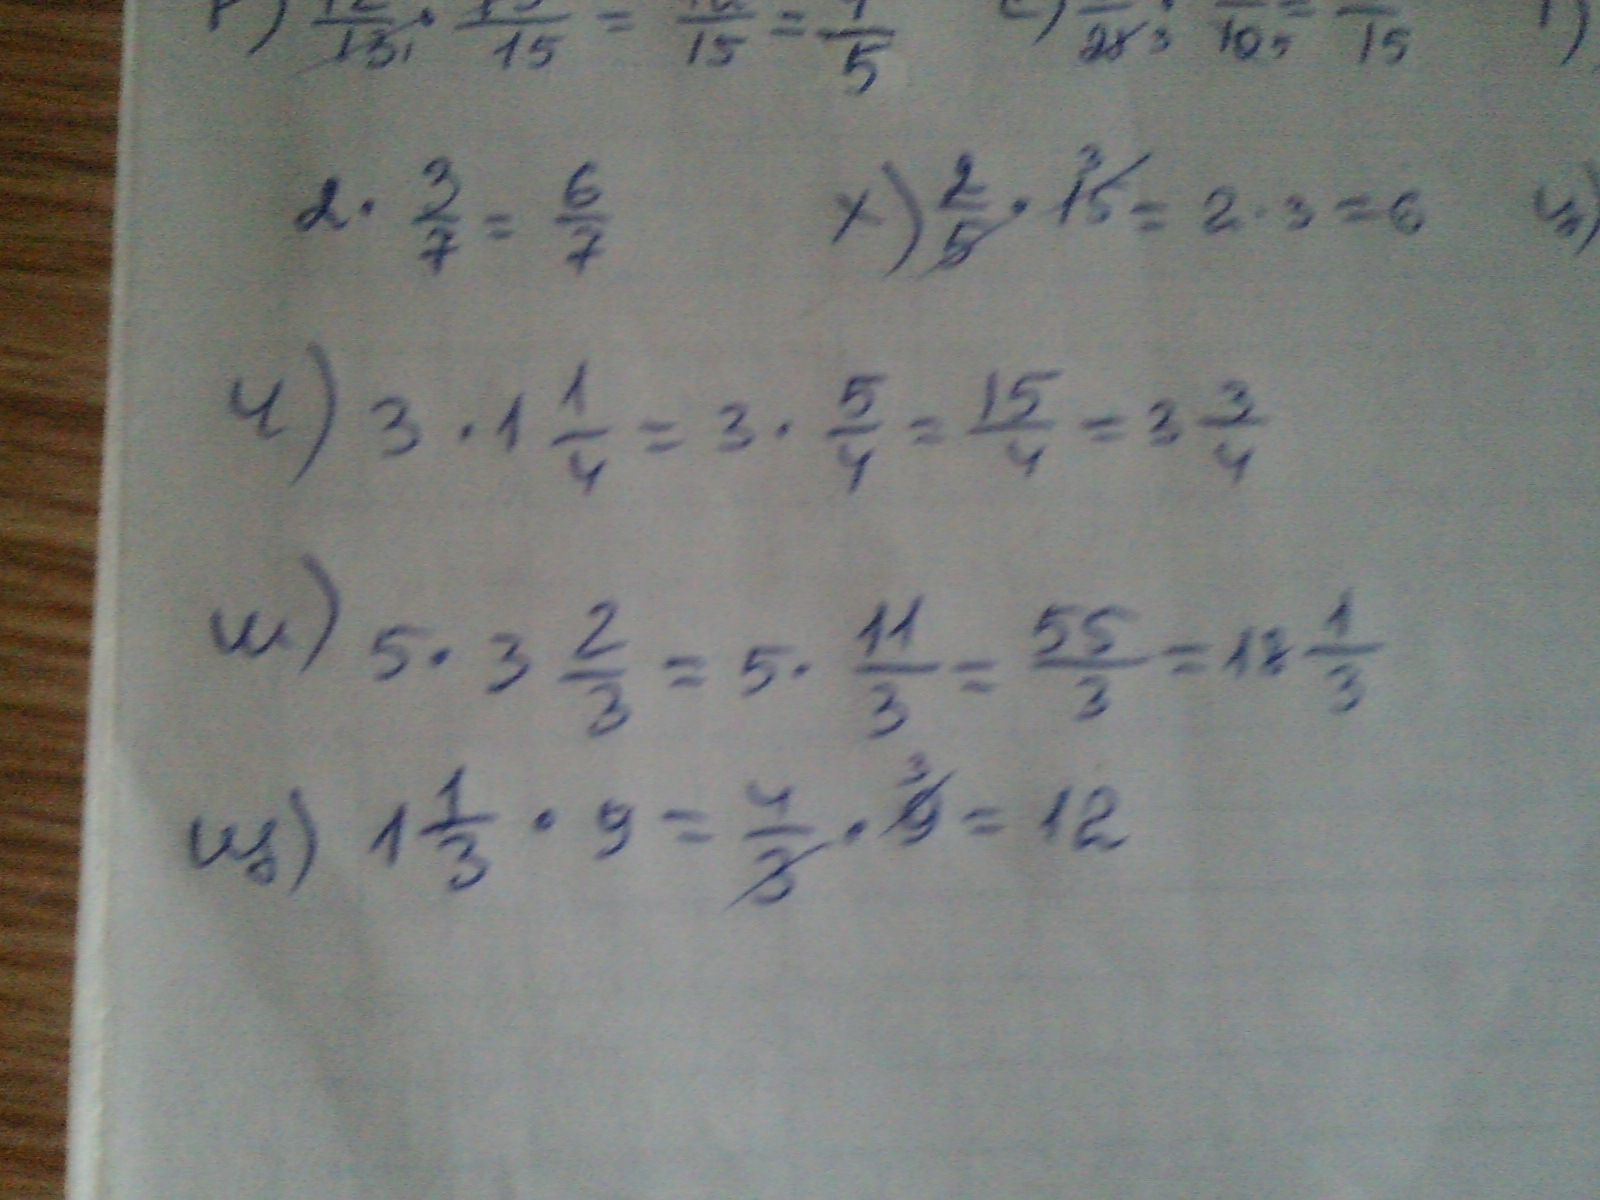 р) 12/13 · 13/15 = 12/15 = 4/5 с)
2 · 3/7 = 6/7 х) 2/5 · 15 = 2 · 3 = 6 ц)
ч) 3 · 1 1/4 = 3 · 5/4 = 15/4 = 3 3/4
ш) 5 · 3 2/3 = 5 · 11/3 = 55/3 = 18 1/3
щ) 1 1/3 · 9 = 4/3 · 9 = 12